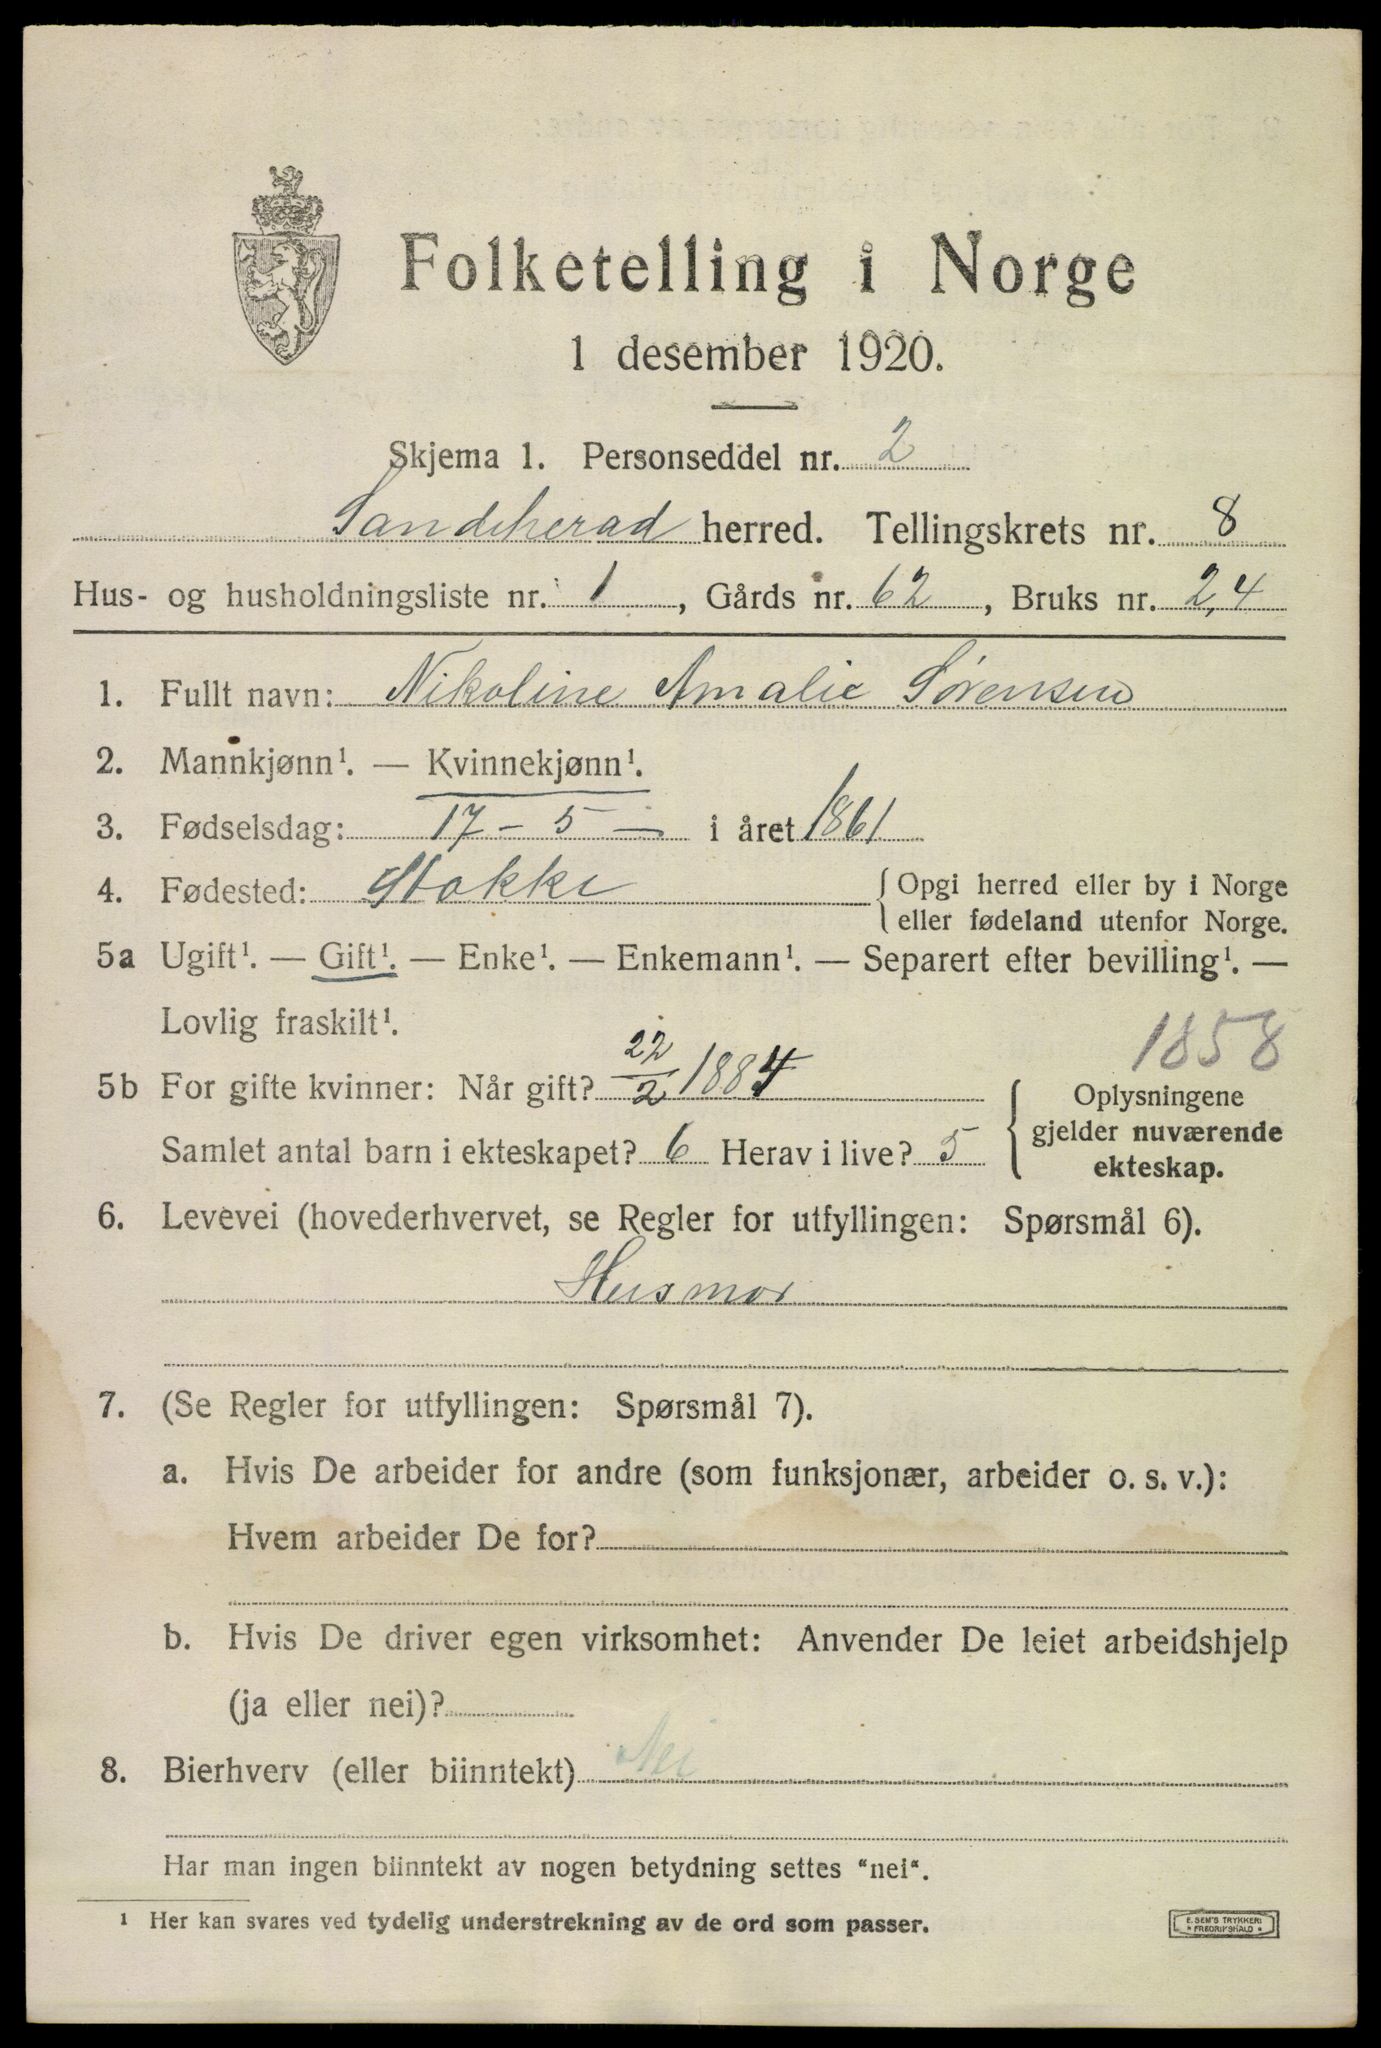 Folketelling i Norge
1 desember 1920.
Skjema 1. Personseddel nr. 2
Sandeherad herred. Tellingskrets nr. 8
Hus- og husholdningsliste nr. 1, Gårds nr. 62, Bruks nr. 2,4
1. Fullt navn: Nikoline Amalie Sørensen
2. Mannkjønn¹. — Kvinnekjønn¹.
3. Fødselsdag: 17 - 5 - i året 1861
4. Fødested: Stokke { Opgi herred eller by i Norge
eller fødeland utenfor Norge.
5a Ugift¹. — Gift¹. — Enke¹. — Enkemann¹. — Separert efter bevilling¹. —
Lovlig fraskilt¹.
1858
5b For gifte kvinner: Når gift? 22/2 1884
Samlet antal barn i ekteskapet? 6 Herav i live? 5
{ Oplysningene
gjelder nuværende
ekteskap.
6. Levevei (hovederhvervet, se Regler for utfyllingen: Spørsmål 6).
Husmor
7. (Se Regler for utfyllingen: Spørsmål 7).
a. Hvis De arbeider for andre (som funksjonær, arbeider o. s. v.):
Hvem arbeider De for?
b. Hvis De driver egen virksomhet: Anvender De leiet arbeidshjelp
(ja eller nei)?
8. Bierhverv (eller biinntekt) Nei
Har man ingen biinntekt av nogen betydning settes "nei".
¹ Her kan svares ved tydelig understrekning av de ord som passer.
E. SEM'S TRYKKERI
* FREDRIKSHALD *